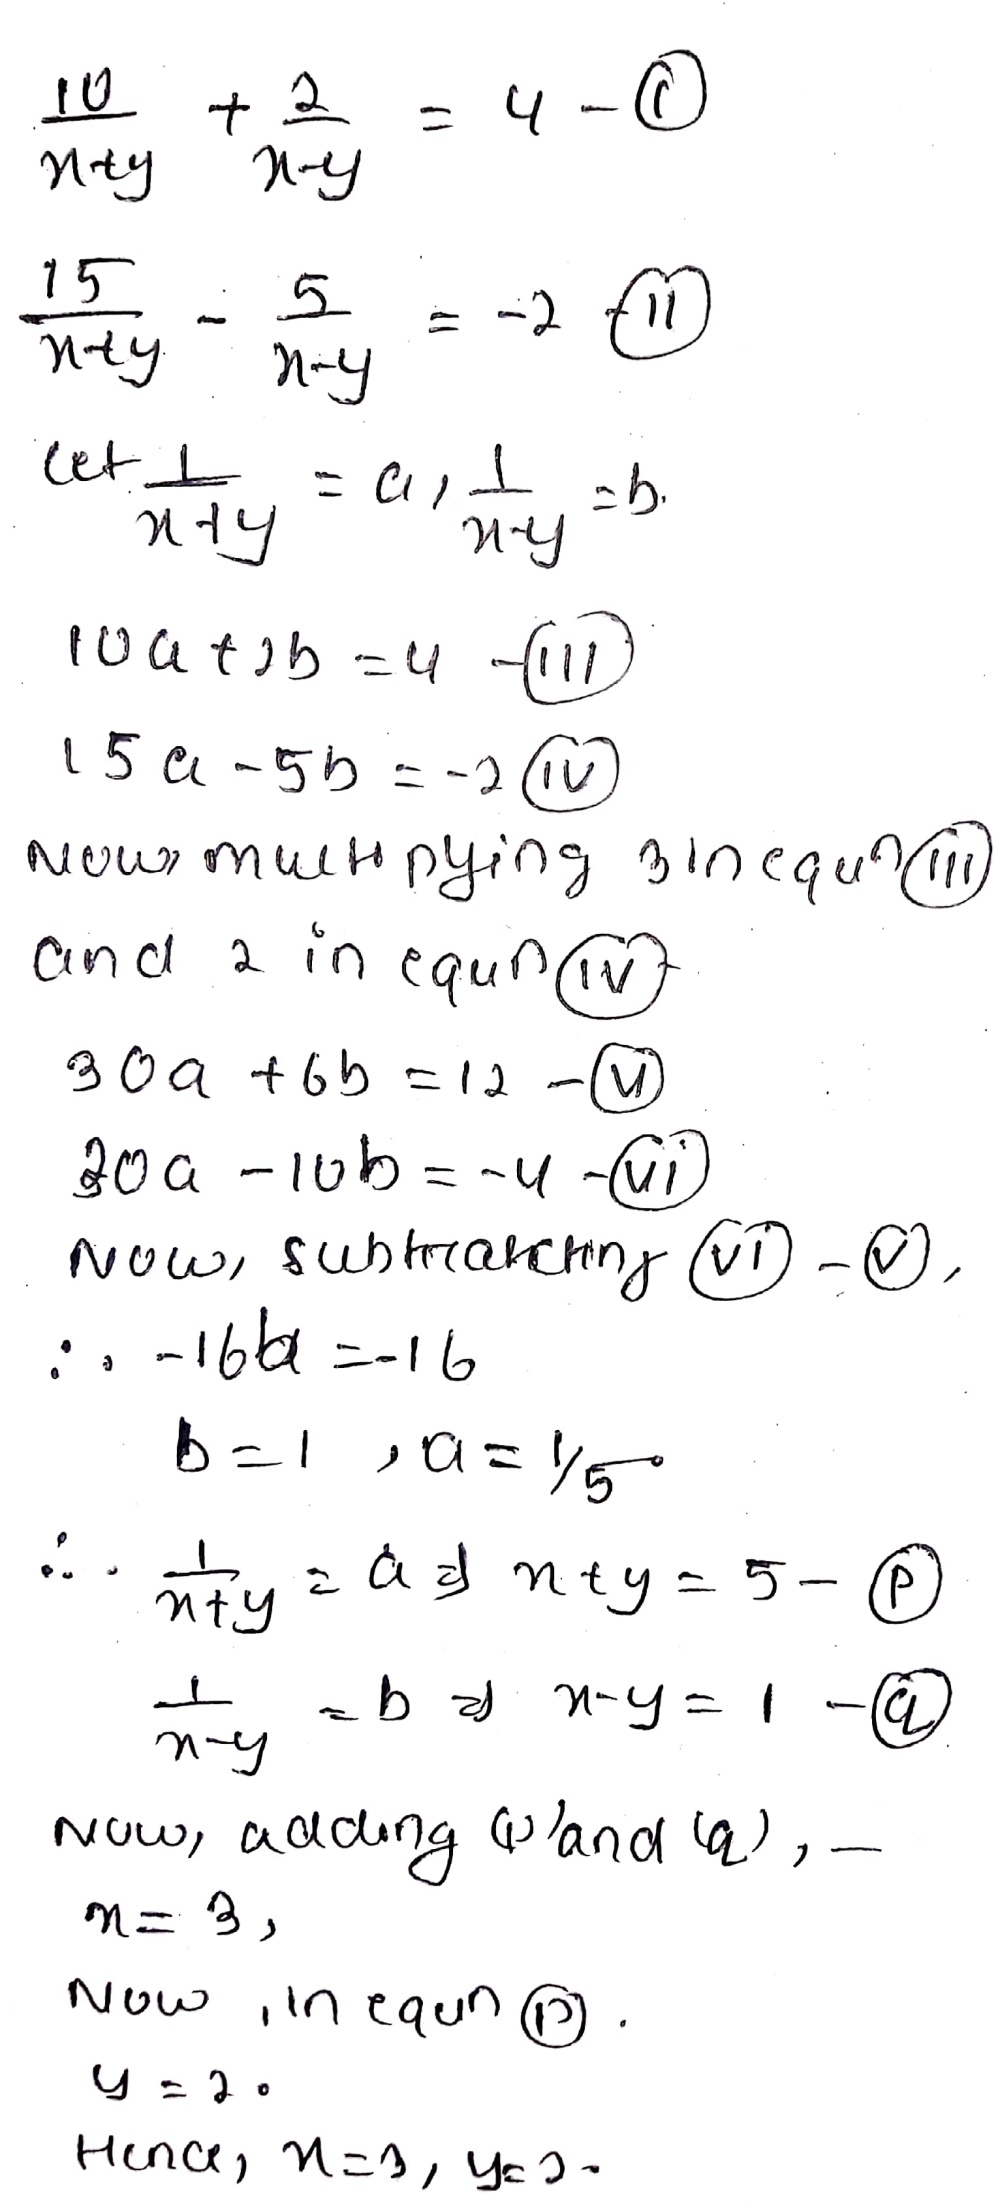 10/x+y + 2/x-y = 4 - (i)
15/x+y - 5/x-y = -2 - (ii)
let 1/x+y = a, 1/x-y = b.
10a + 2b = 4 - (iii)
15a - 5b = -2 (iv)
Now, multiplying 3 in equn (iii)
and 2 in equn (iv)
30a + 6b = 12 - (v)
30a - 10b = -4 - (vi)
Now, subtracting (vi) - (v),
∴ -16b = -16
b = 1, a = 1/5
∴ 1/x+y = a ⇒ x+y = 5 - (p)
1/x-y = b ⇒ x-y = 1 - (q)
Now, adding (p) and (q), -
x = 3,
Now, in equn (p).
y = 2.
Hence, x=3, y=2.